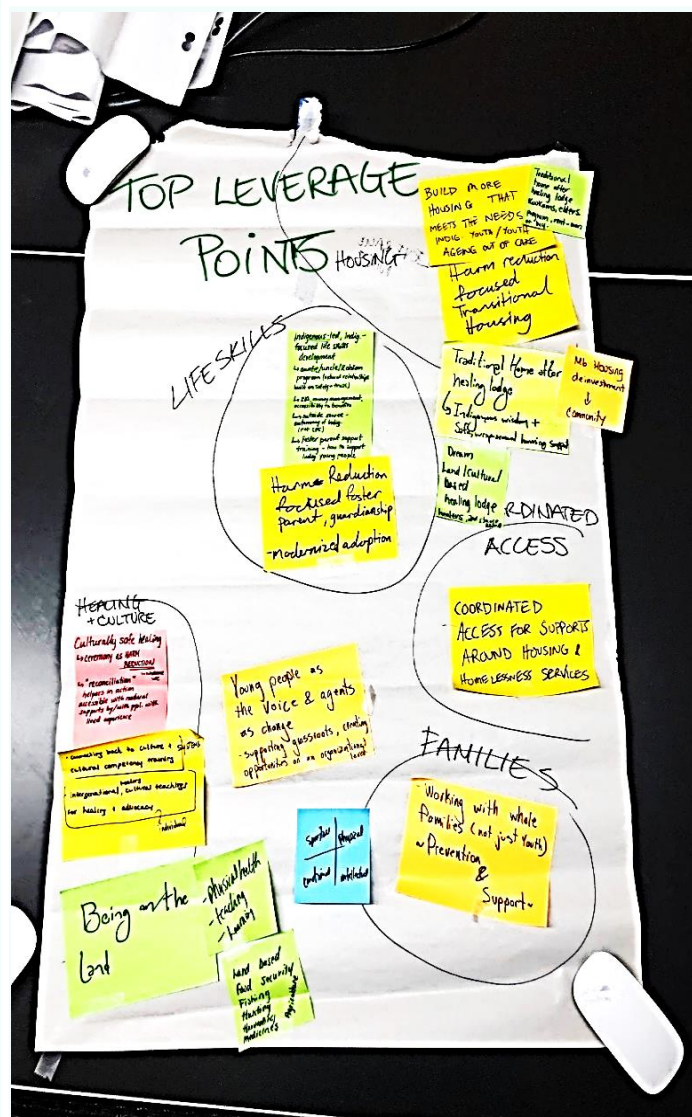 TOP LEVERAGE
POINTS
HOUSING
BUILD MORE
HOUSING THAT
MEETS THE NEEDS
INDIG YOUTH/YOUTH
AGEING OUT OF CARE
Traditional
home after
healing lodge
Kookums, elders,
program, rent-
Harm reduction
focused
Transitional
Housing
Traditional Home after
healing lodge
↳ Indigenous wisdom +
Safe, wraparound housing support
Mb Housing
de investment
↓
community
Dream
Land/Cultural
Based
healing lodge
LIFESKILLS
Indigenous-led, Indig.-
focused life skills
development
↳ auntie/uncle/Kookum
program (natural relationships
built on safety + trust)
money management,
accessibility to benefits
↳ outside source -
↳ foster parent support
training - how to support
young people
Harm Reduction
focused foster
parent, guardianship
-modernized adoption
RDINATED
ACCESS
COORDINATED
ACCESS FOR SUPPORTS
AROUND HOUSING &
HOMELESSNESS SERVICES
HEALING
+ CULTURE
Culturally safe healing
↳ ceremony as HARM
REDUCTION
↳ "reconciliation"
helpers in action
accessible with natural
supports by/with ppl. with
lived experience
- Connecting back to culture + systems
cultural competency training
healing
intergenerational, cultural teachings
for healing + advocacy
individual
Young people as
the voice & agents
as change
- Supporting grassroots, creating
opportunities on an organizational
level
FAMILIES
- Working with whole
families (not just Youth)
~ Prevention
&
Support ~
Spiritual
physical
emotional
intellectual
Being on the
Land
- physical health
- teaching
- learning
Land based
Food security/
Fishing
Hunting
Medicines
Agriculture